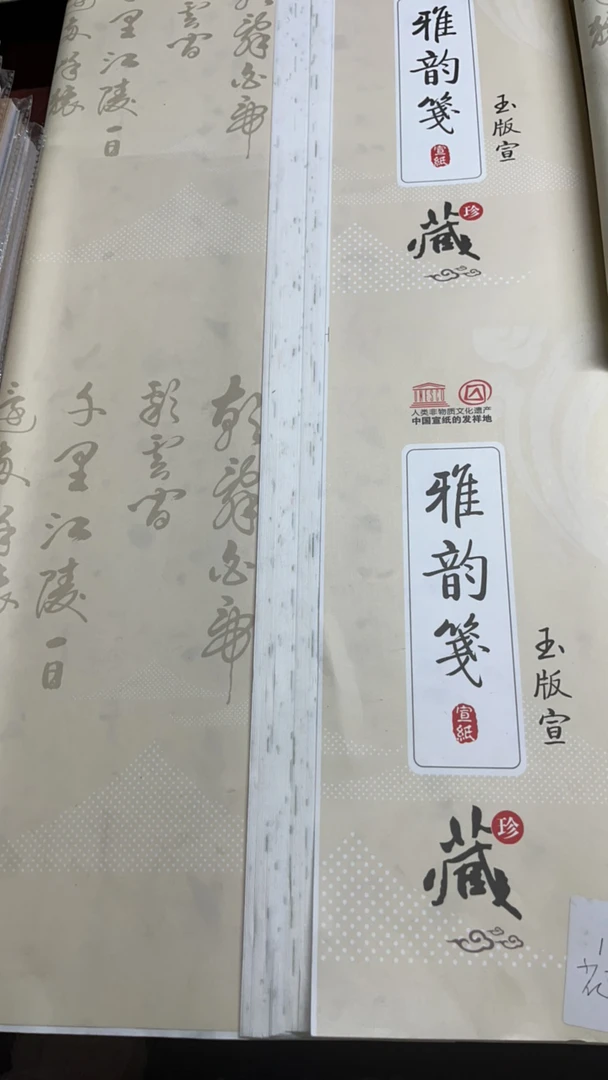 雅韵笺
宣紙
玉版宣
珍
藏
千里江陵一日
彩雲間
人类非物质文化遗产
中国宣纸的发祥地
雅韵笺
宣紙
玉版宣
珍
藏
朝辭白帝
彩雲間
千里江陵一日